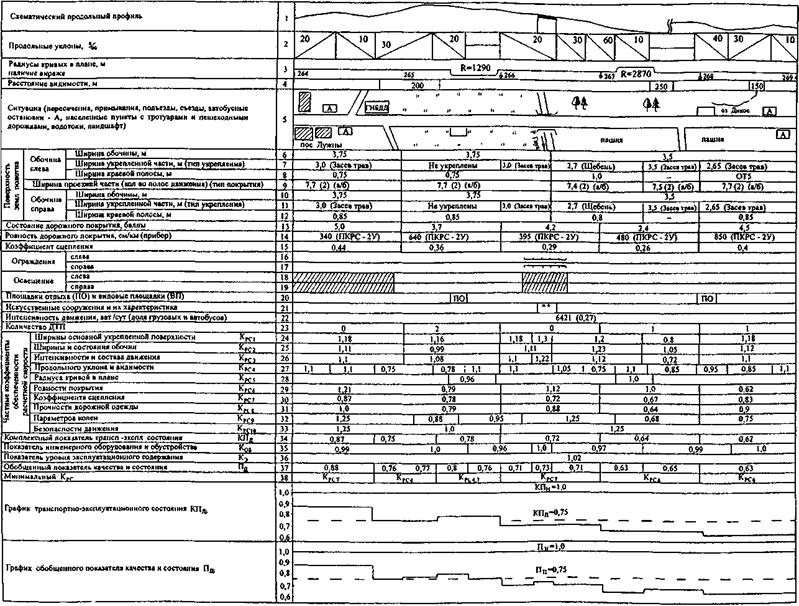 Схематический продольный профиль 1
Продольные уклоны, ‰ 2 20 10 30 20 20 30 60 10 40 30 10
Радиусы кривых в плане, м
наличие виража 3 R=1290 R=2870
264 265 266 267 268 269
Расстояние видимости, м 4 200 250 150
Ситуация (пересечения, примыкания, подъезды, съезды, автобусные
остановки - А, населенные пункты с тротуарами и пешеходными
дорожками, водотоки, ландшафт) 5
А ГИБДД А оз Дикое А
пос Лужны пашня пашня
Поверхность земляного полотна
Обочина слева
Ширина обочины, м 6 3,75 3,75 3,5
Ширина укрепленной части, м (тип укрепления) 7 3,0 (Засев трав) Не укреплены 3,0 (Засев трав) 2,7 (Щебень) 3,5 (Засев трав) 2,65 (Засев трав)
Ширина краевой полосы, м 8 0,75 0,75 1,0 – ОТ5
Ширина проезжей части (кол во полос движения) (тип покрытия) 9 7,7 (2) (а/б) 7,7 (2) (а/б) 7,4 (2) (а/б) 7,5 (2) (а/б) 7,7 (2) (а/б)
Обочина справа
Ширина обочины, м 10 3,75 3,75 3,5
Ширина укрепленной части, м (тип укрепления) 11 3,0 (Засев трав) Не укреплены 3,0 (Засев трав) 2,7 (Щебень) 3,5 (Засев трав) 2,65 (Засев трав)
Ширина краевой полосы, м 12 0,85 0,85 0,8 – 0,85
Состояние дорожного покрытия, баллы 13 5,0 3,7 4,2 2,4 4,5
Ровность дорожного покрытия, см/км (прибор) 14 340 (ПКРС - 2У) 640 (ПКРС - 2У) 395 (ПКРС - 2У) 480 (ПКРС - 2У) 850 (ПКРС - 2У)
Коэффициент сцепления 15 0,44 0,36 0,29 0,26 0,4
Ограждения слева 16
справа 17
Освещение слева 18
справа 19
Площадки отдыха (ПО) и видовые площадки (ВП) 20 ПО ПО
Искусственные сооружения и их характеристика 21
Интенсивность движения, авт /сут (доля грузовых и автобусов) 22 6421 (0,27)
Количество ДТП 23 0 2 0 1 1
Частные коэффициенты обеспеченности расчетной скорости
Ширины основной укрепленной поверхности КРС1 24 1,18 1,16 1,18 1,3 1,2 0,8 1,18
Ширины и состояния обочин КРС2 25 1,11 0,99 1,11 1,23 1,05 1,12
Интенсивности и состава движения КРС3 26 1,1 1,08 1,1 1,22 1,12 0,72 1,1
Продольного уклона и видимости КРС4 27 1,1 1,1 0,75 0,78 1,1 1,1 1,05 0,75 1,1 0,85 0,95 0,85 1,1
Радиуса кривой в плане КРС5 28 0,96 1,0
Ровности покрытия КРС6 29 1,21 0,79 1,12 1,0 0,62
Коэффициента сцепления КРС7 30 0,87 0,78 0,72 0,67 0,83
Прочности дорожной одежды КРС8 31 1,0 0,79 0,88 0,64 0,9
Параметров колеи КРС9 32 1,25 0,88 0,95 1,25 0,68 0,75
Безопасности движения КРС10 33 1,25 1,0 1,25
Комплексный показатель трансп -экспл. состояния КПД 34 0,87 0,75 0,78 0,72 0,64 0,62
Показатель инженерного оборудования и обустройства КОБ 35 0,99 1,0 0,96 1,0 0,97 0,99 1,0
Показатель уровня эксплуатационного содержания КЭ 36 1,02
Обобщенный показатель качества и состояния ПД 37 0,88 0,76 0,77 0,8 0,76 0,71 0,73 0,71 0,63 0,65 0,63
Минимальный КРС 38 КРС7 КРС4 КРС4,7 КРС7 КРС8 КРС6
График транспортно-эксплуатационного состояния КПД
1,0
0,9
0,8
0,7
0,6
КПН=1,0
КПД=0,75
График обобщенного показателя качества и состояния ПД
1,0
0,9
0,8
0,7
0,6
ПН=1,0
ПД=0,75